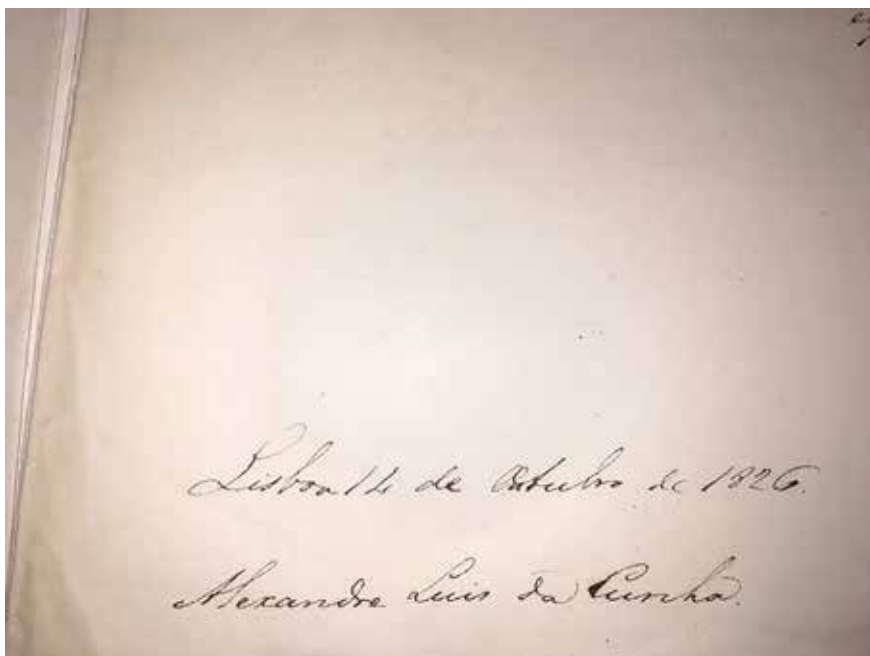 Lisboa 14 de Outubro de 1826.
Alexandre Luis da Cunha.